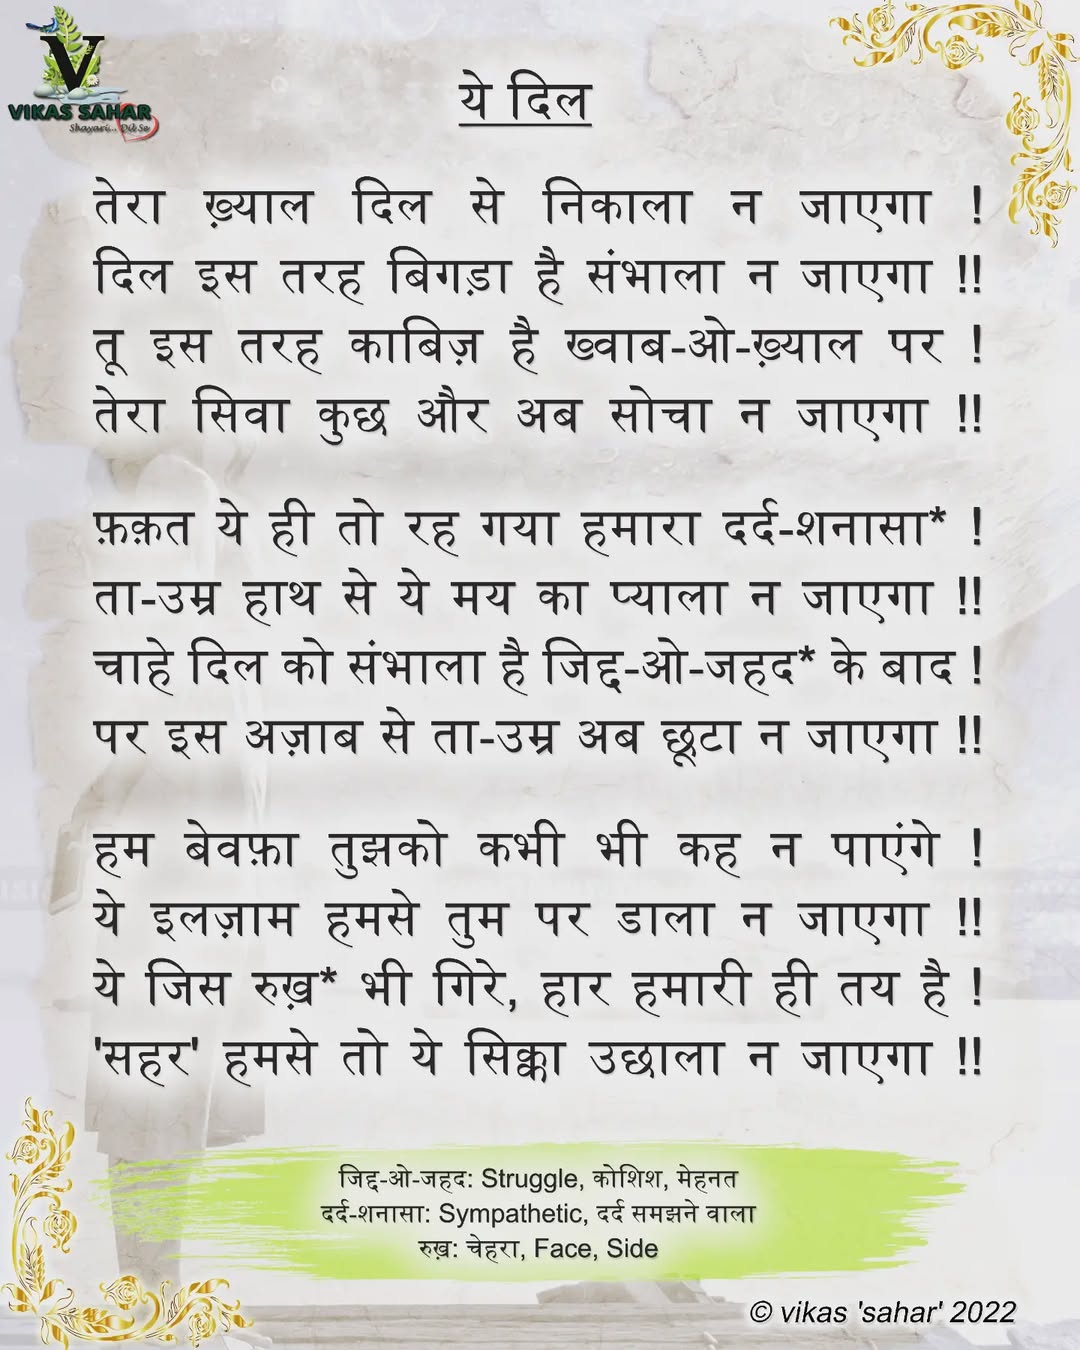 V
VIKAS SAHAR
Shayari... Dil Se
ये दिल
तेरा ख़्याल दिल से निकाला न जाएगा !
दिल इस तरह बिगड़ा है संभाला न जाएगा !!
तू इस तरह काबिज़ है ख्वाब-ओ-ख़्याल पर !
तेरा सिवा कुछ और अब सोचा न जाएगा !!
फ़क़त ये ही तो रह गया हमारा दर्द-शनासा* !
ता-उम्र हाथ से ये मय का प्याला न जाएगा !!
चाहे दिल को संभाला है जिद्द-ओ-जहद* के बाद !
पर इस अज़ाब से ता-उम्र अब छूटा न जाएगा !!
हम बेवफ़ा तुझको कभी भी कह न पाएंगे !
ये इलज़ाम हमसे तुम पर डाला न जाएगा !!
ये जिस रुख़* भी गिरे, हार हमारी ही तय है !
'सहर' हमसे तो ये सिक्का उछाला न जाएगा !!
जिद्द-ओ-जहद: Struggle, कोशिश, मेहनत
दर्द-शनासा: Sympathetic, दर्द समझने वाला
रुख़: चेहरा, Face, Side
© vikas 'sahar' 2022